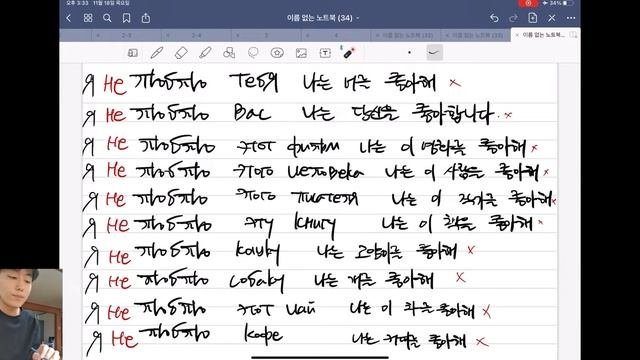 오후 3:33 11월 18일 목요일
34%
이름 없는 노트북 (34)
2-3
2-4
3
4
이름 없는 노트북 (32)
이름 없는 노트북 (33)
이름 없는 노트북...
Я не люблю тебя 나는 너를 좋아해 ×
Я не люблю Вас 나는 당신을 좋아합니다. ×
Я не люблю этот фильм 나는 이 영화를 좋아해 ×
Я не люблю этого человека 나는 이 사람을 좋아해 ×
Я не люблю этого писателя 나는 이 작가를 좋아해 ×
Я не люблю эту книгу 나는 이 책을 좋아해 ×
Я не люблю кошку 나는 고양이를 좋아해 ×
Я не люблю собаку 나는 개를 좋아해 ×
Я не люблю этот чай 나는 이 차를 좋아해 ×
Я не люблю кофе 나는 커피를 좋아해 ×